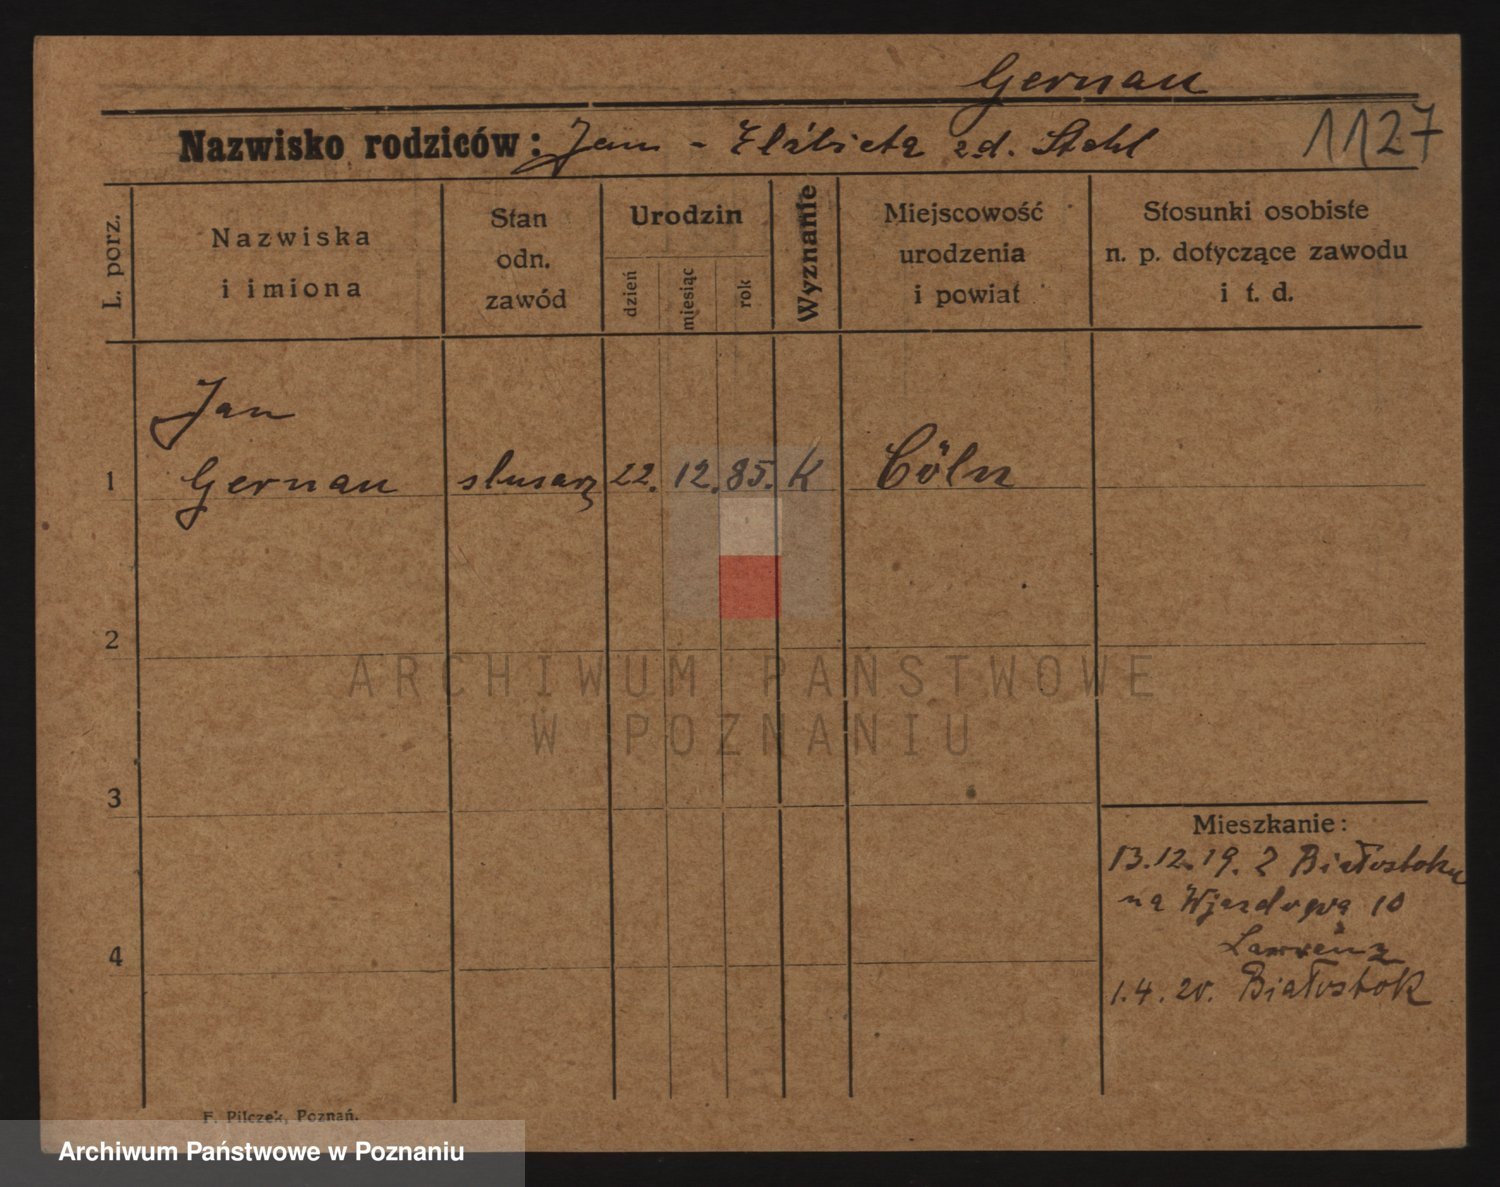 Gernau
Nazwisko rodziców: Jan - Elżbieta zd. Stahl 1127
L. porz.
Nazwiska
i imiona
Stan
odn.
zawód
Urodzin
dzień
miesiąc
rok
Wyznanie
Miejscowość
urodzenia
i powiat
Stosunki osobiste
n. p. dotyczące zawodu
i t. d.
Jan
1 Gernau slusarz 22. 12. 85. K Cöln
2
3
4
Mieszkanie:
13.12.19. z Białostoku
na Wjazdową 10
1.4.20. Białostok
F. Pilczek, Poznań.
ARCHIWUM PAŃSTWOWE
W POZNANIU
Archiwum Państwowe w Poznaniu